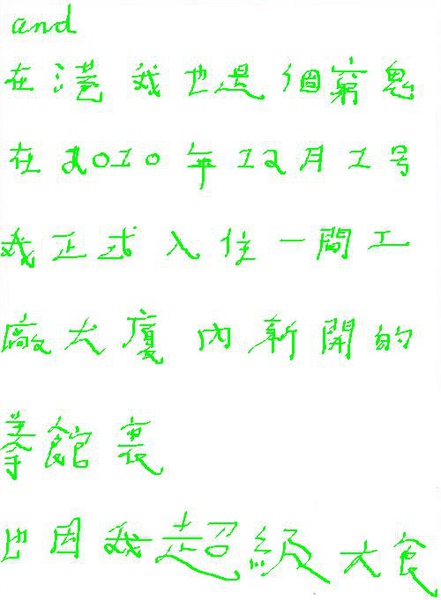 and
在港我也是個窮鬼
在2010年12月1号
我正式入住一間工
廠大廈內新開的
拳館裏
也因我超級大食